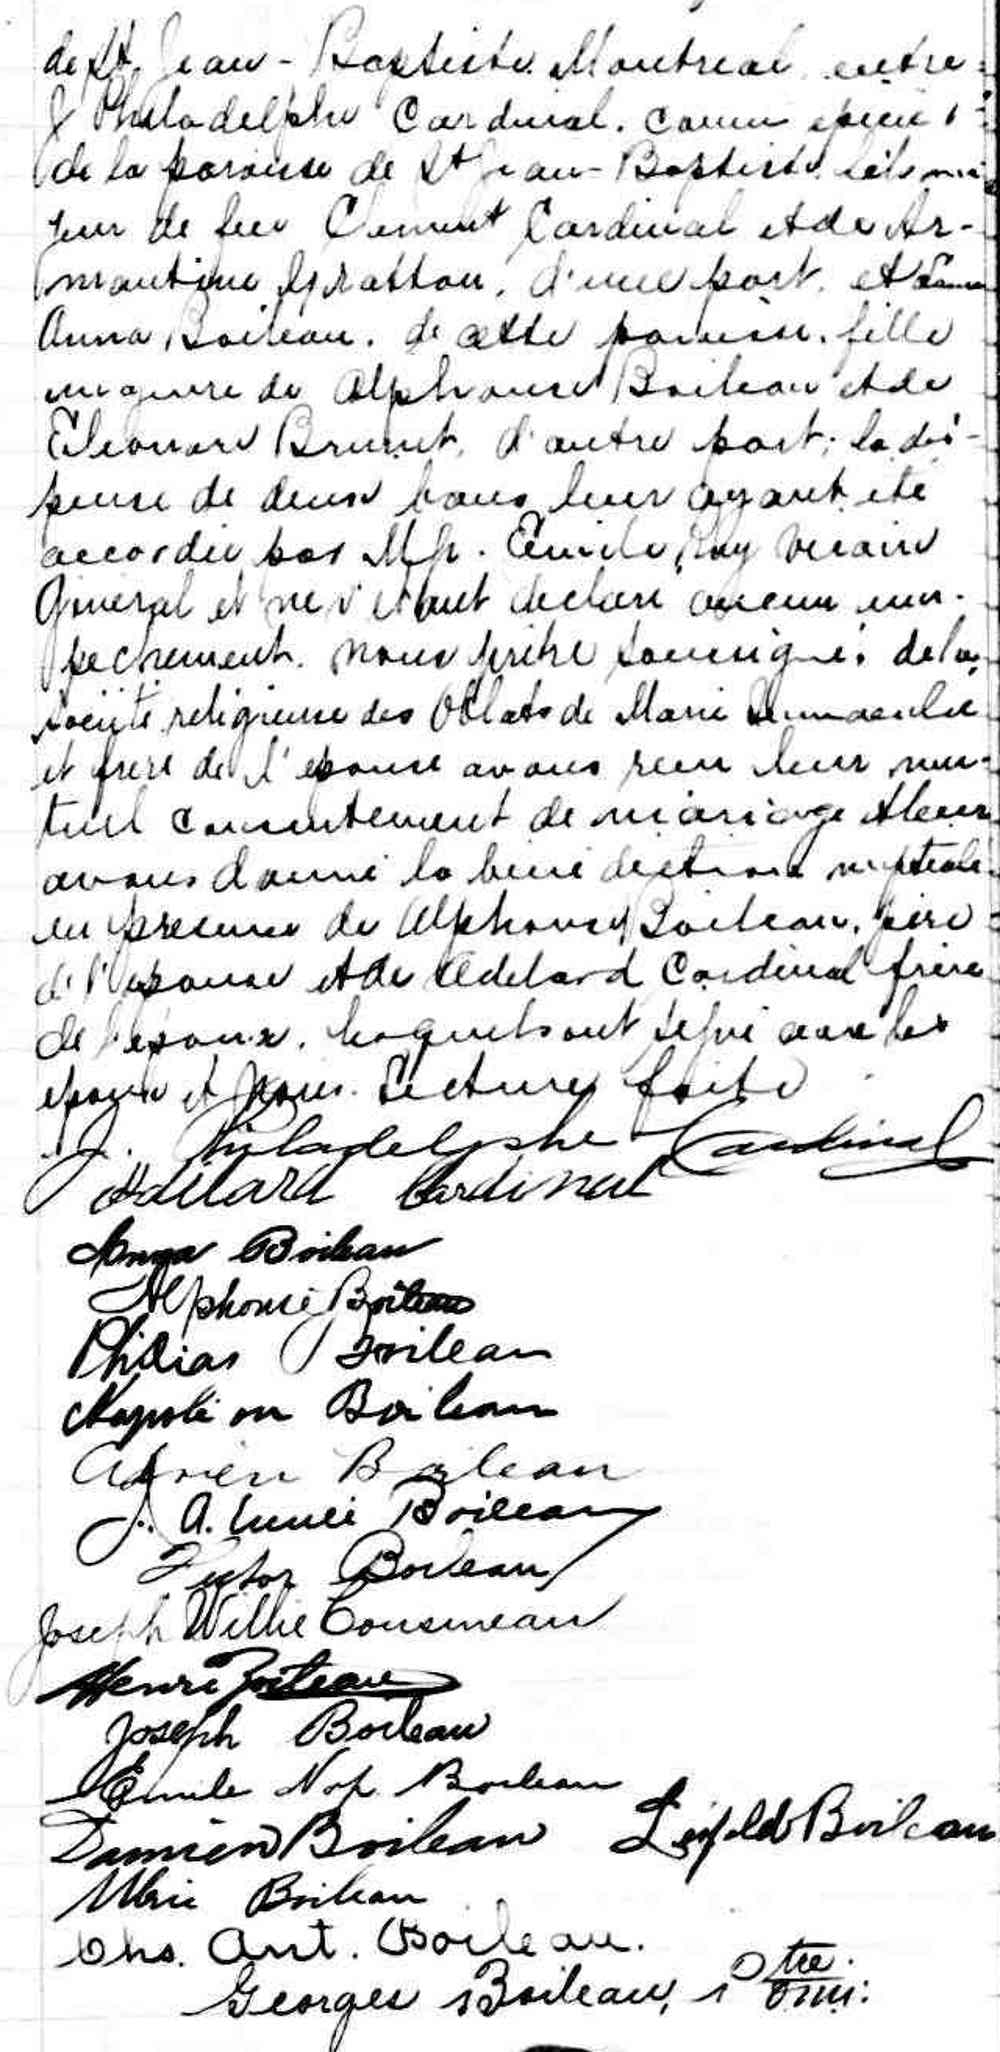 de St. Jean-Baptiste Montreal entre
J Philadelphe Cardinal. commis épicier
de la paroisse de St Jean-Baptiste fils ma-
jeur de feu Clement Cardinal et de Ar-
mantine Gratton, d'une part, et
Anna Boileau. de cette paroisse. fille
mineure de Alphonse Boileau et de
Eleonore Brunet, d'autre part; la dis-
pense de deux bans leur ayant été
accordée par Mgr. Emile Roy vicaire
General et ne s'étant declaré aucun em-
pechement. nous prêtre soussigné. de la
société religieuse des Oblats de Marie Immaculée
et frère de l'épouse avons reçu leur mu-
tuel consentement de mariage et leur
avons donné la bénédiction nuptiale
en presence de Alphonse Boileau, père
de l'épouse et de Adelard Cardinal frère
de l'époux. lesquels ont signé avec les
epoux et nous. Lecture faite
J. Philadelphe Cardinal
Adélard Cardinal
Anna Boileau
Alphonse Boileau
Philias Boileau
Napoléon Boileau
Adrien Boileau
J. A. Boileau
Victor Boileau
Joseph Willie Cousineau
Henri Boileau
Joseph Boileau
Emile Nap. Boileau
Damien Boileau Léopold Boileau
Ulric Boileau
Chs. Ant. Boileau.
Georges Boileau, Ptre. omi.